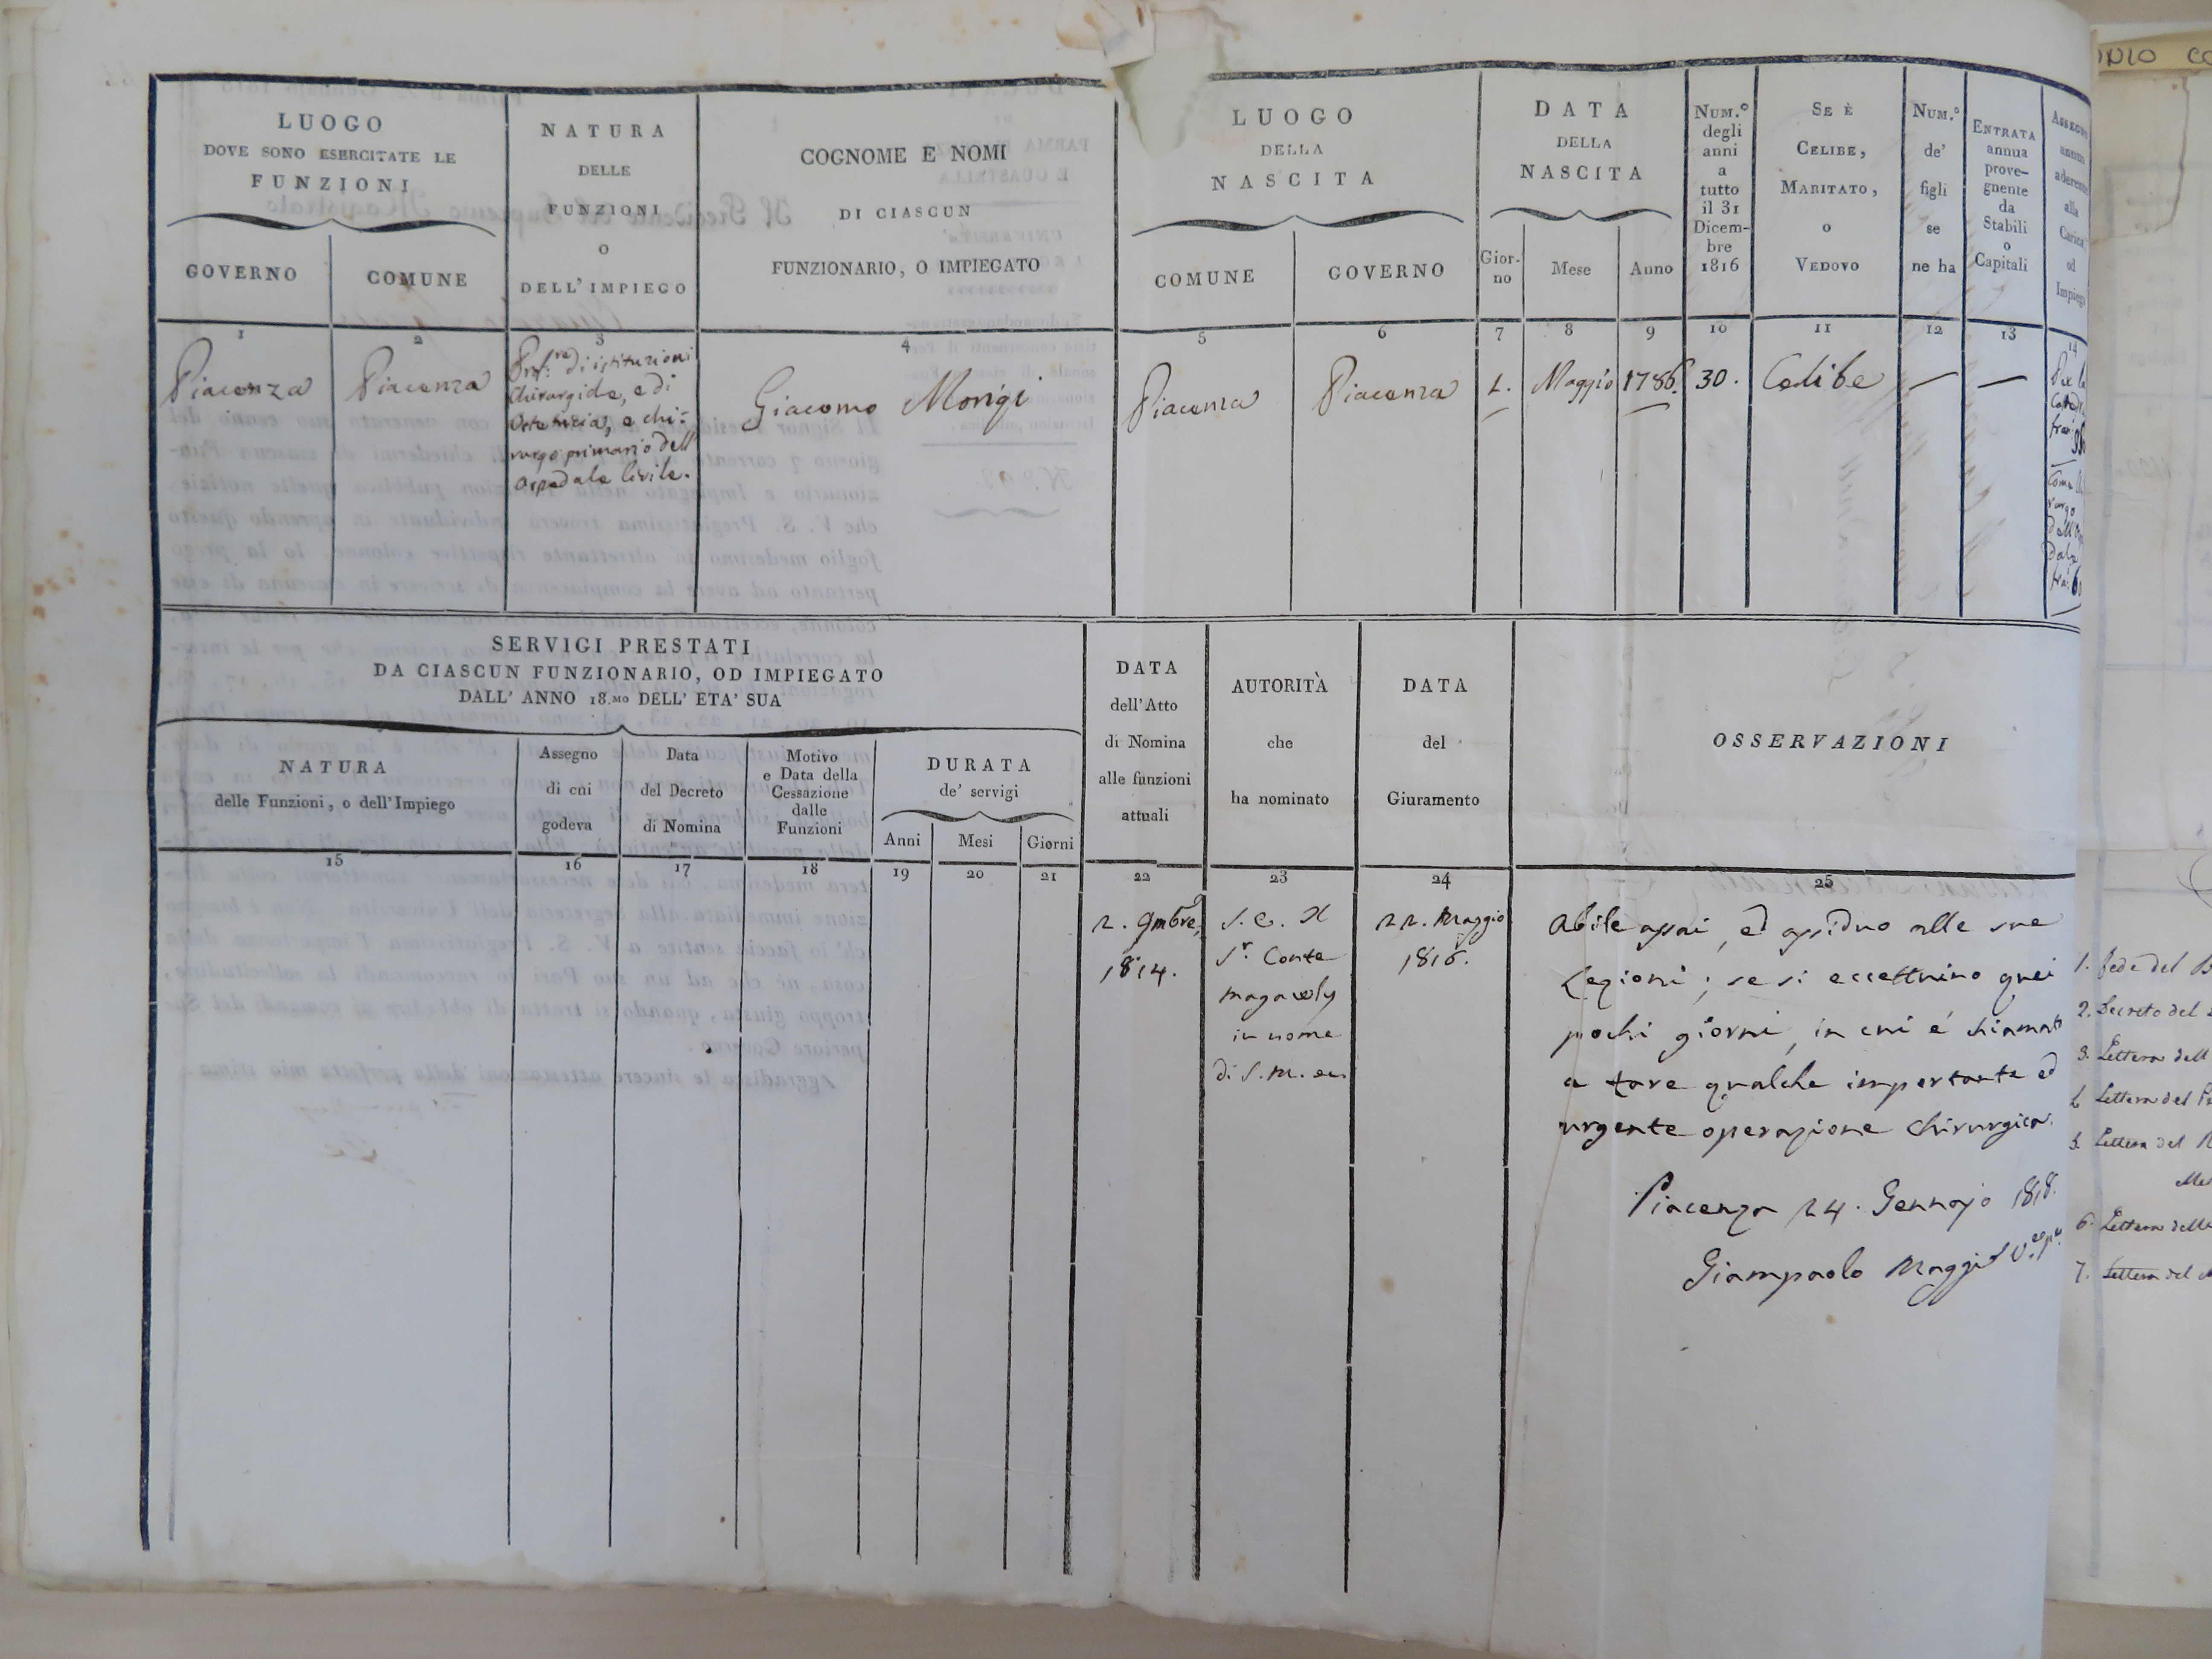 LUOGO
DOVE SONO ESERCITATE LE
FUNZIONI
GOVERNO
COMUNE
NATURA
DELLE
FUNZIONI
O
DELL' IMPIEGO
COGNOME E NOMI
DI CIASCUN
FUNZIONARIO, O IMPIEGATO
LUOGO
DELLA
NASCITA
COMUNE
GOVERNO
DATA
DELLA
NASCITA
Gior-
no
Mese
Anno
NUM.º
degli
anni
a
tutto
il 31
Dicem-
bre
1816
SE È
CELIBE,
MARITATO,
o
VEDOVO
NUM.º
de'
figli
se
ne ha
ENTRATA
annua
prove-
gnente
da
Stabili
o
Capitali
ASSEGNO
annuo
aderente
alla
Carica
od
Impiego
1
2
3
4
5
6
7
8
9
10
11
12
13
14
Piacenza
Piacenza
Prof.re di istituzioni
Chirurgide, e di
Ostetricia, e chi-
rurgo primario dell
Ospedale Civile.
Giacomo Morigi
Piacenza
Piacenza
1.
Maggio
1786.
30.
Celibe
—
—
Per la
SERVIGI PRESTATI
DA CIASCUN FUNZIONARIO, OD IMPIEGATO
DALL' ANNO 18.MO DELL' ETA' SUA
NATURA
delle Funzioni, o dell'Impiego
Assegno
di cui
godeva
Data
del Decreto
di Nomina
Motivo
e Data della
Cessazione
dalle
Funzioni
DURATA
de' servigi
Anni
Mesi
Giorni
DATA
dell'Atto
di Nomina
alle funzioni
attuali
AUTORITÀ
che
ha nominato
DATA
del
Giuramento
OSSERVAZIONI
15
16
17
18
19
20
21
22
23
24
25
2. 9mbre,
1814.
S. E. Il
Sr. Conte
Magawly
in nome
di S. M.
22. Maggio
1816.
Abile assai, ed assiduo nelle sue
Lezioni; se si eccettuino quei
pochi giorni, in cui é chiamato
a fare qualche importante ed
urgente operazione Chirurgica.
Piacenza 24. Gennajo 1818.
Giampaolo Maggi
1. Fede del
2. Decreto del
3. Lettera dell
4. Lettera del
5. Lettera del
6. Lettera della
7. Lettera del